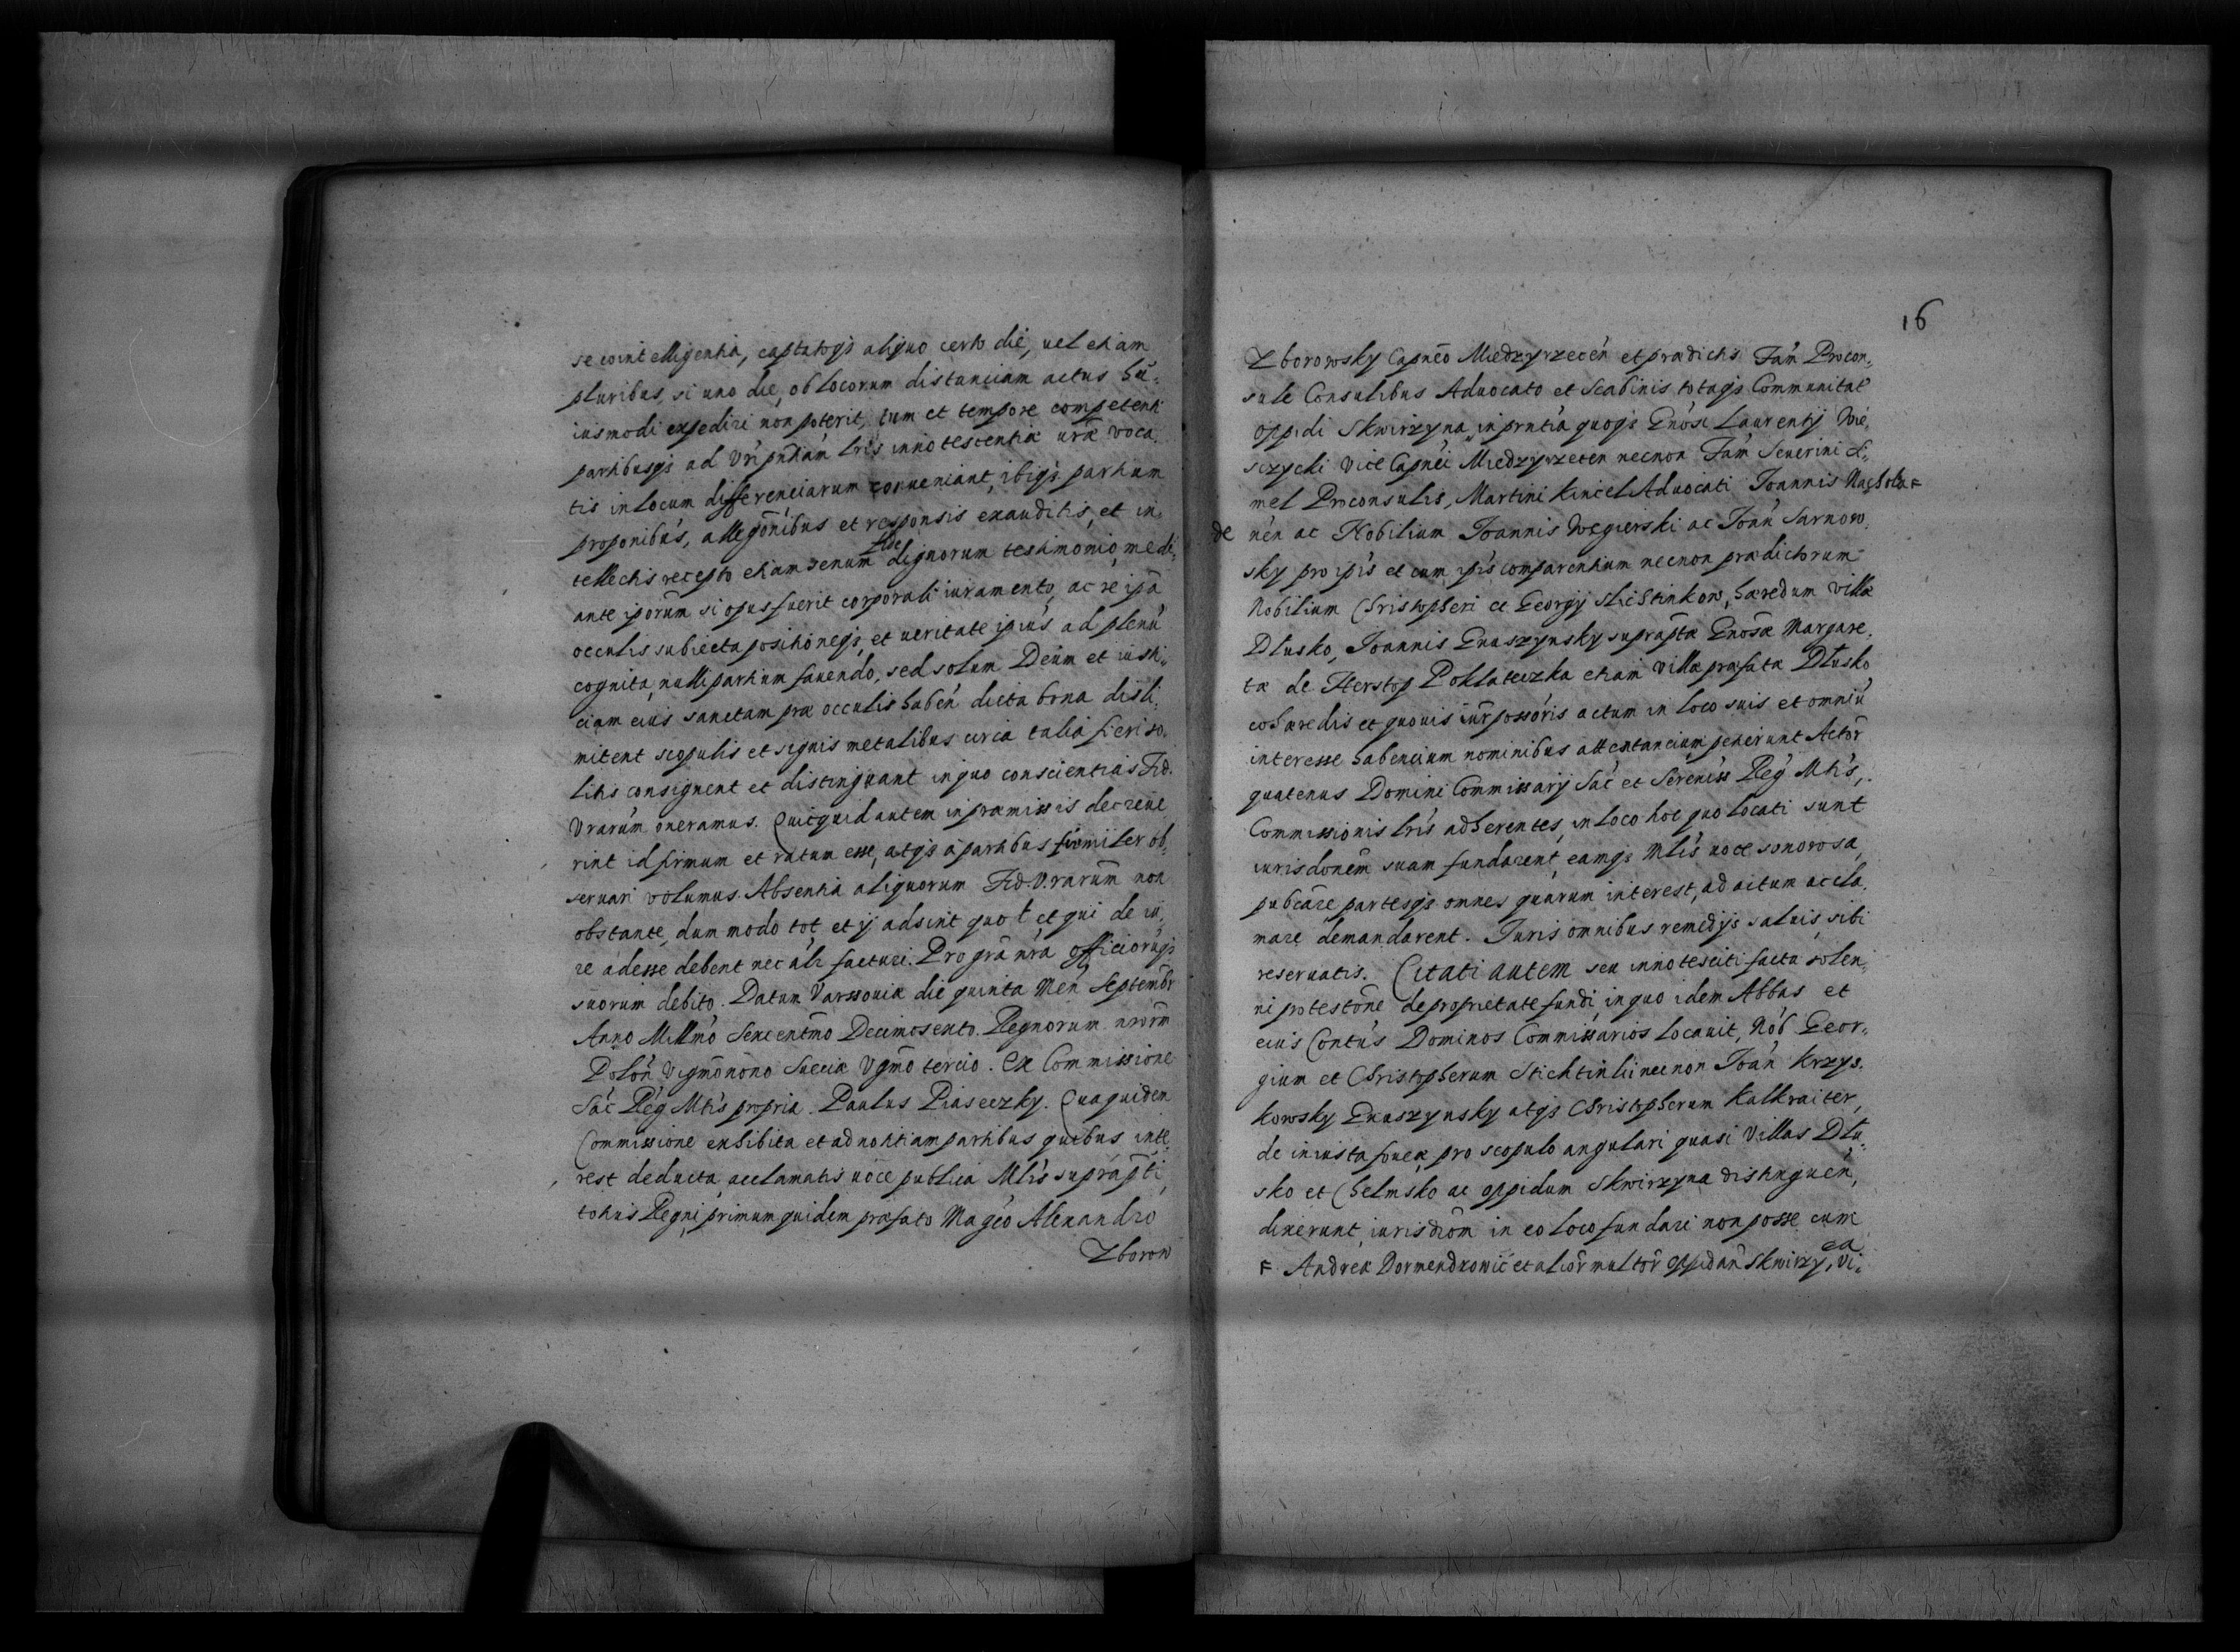 se cointelligentia, captatoqs aliquo certo die, uel etiam
pluribus, si uno die, ob locorum distanciam actus hu„
iusmodi expediri non poterit, tum et tempore competenti
partibusqs ad Vri pntiam lris innotescentiæ uræ voca„
tis in locum differenciarum conueniant, ibiqs partium
proponibus, allegõnibus et responsis exauditis, et in„
tellectis recepto etiam senum fide dignorum testimonio, medi„
ante iporum si opus fuerit corporali iuramento, ac re ipa
occulis subiecta positioneqs, et ueritate ipius ad plenu
cognita, nulli partium fauendo, sed solum Deum et iusti„
ciam eius sanctam præ occulis haben dicta bona disli„
mitent scopulis et signis metalibus circa talia fieri so„
litis consignent et distinguant in quo conscientias Fid.
Vrarum oneramus. Quicquid autem in præmissis decreue
rint id firmum et ratum esse, atqs a partibus firmiter ob„
seruari volumus. Absentia aliquorum Fid. V.rarum non
obstante, dum modo tot et ij adsint quot et qui de iu„
re adesse debent nec alr facturi. Pro gra nra officiorũqs
suorum debito. Datum Varssouiæ die quinta Men Septembr
Anno Millmo Sexcentmo Decimosexto. Regnorum nrorm
Polon Vigmonono Sueciæ Vgmo tercio. Ex Commissione
Sac Reg Mtis propria. Paulus Piaseczky. Qua quidem
Commissione exhibita et ad notitiam partibus quibus inte„
rest deducta, acclamatis uoce publica Mlis suprapti,
totius Regni primum quidem præfato Magco Alexandro
Zborow
16
Zborowsky Capneo Miedzyrzecen et prædictis Fam Procon„
sule Consulibus Aduocato et Scabinis totaqs Communitat
oppidi Skwirzyna, in prntia quoqs Gnosi Laurentij Wie„
szycki Vice Capnei Miedzyrzecen necnon Fam Seuerini
mel Proconsulis, Martini Kincel Aduocati Joannis
de nen ac Nobilium Joannis Wegierski ac Joan Sarnow„
sky pro ipis et cum ipis comparentium necnon prædictorum
Nobilium Christopheri et Georgij Stichtinkow, hæredum villæ
Dłusko, Joannis Gnaszynsky supraptæ Gnosæ Margare„
tæ de Herstop Poklateczka etiam villæ præfatæ Dłusko
cohæredis et quouis iur possoris actum in loco suis et omniu
interesse habencium nominibus attentancium petierunt Actor
quatenus Domini Commissarij Sac et Sereniss Reg Mtis,
Commissionis lris adherentes, in loco hoc quo locati sunt
iurisdonem suam fundarent, eamqs Mlis uoce sonorosa,
pubcare partesqs omnes quarum interest, ad actum accla„
mare demandarent. Juris omnibus remedijs saluis, sibi
reseruatis. Citati autem seu innotesciti facta solen„
ni protestone de proprietate fundi, in quo idem Abbas et
eius Contus Dominos Commissarios locauit, Nob Geor„
gium et Christopherum Stichtinkii necnon Joan Krzys„
kowsky Gnaszynsky atqs Christopherum Kalkraiter,
de iniusta fouea, pro scopulo angulari quasi Villas Dłu„
sko et Chelmsko ac oppidum Skwirzyna distinguen,
dixerunt, iurisdiom in eo loco fundari non posse cum
ea
F Andreæ et alior multor oppidan Skwirzy, Vi„